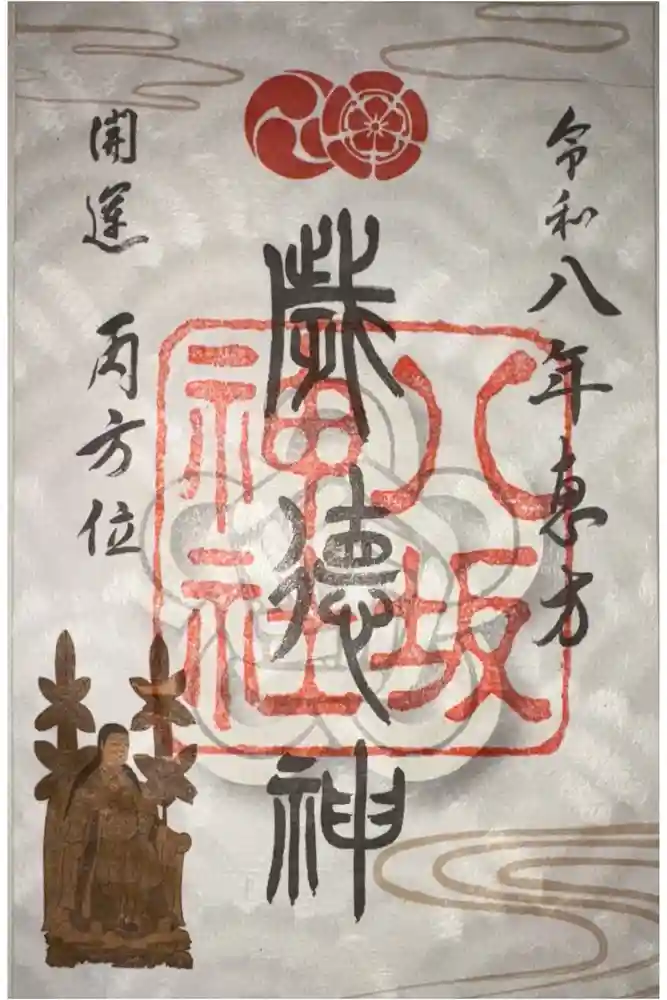 令和八年恵方
歳徳神
八坂
神社
開運 丙方位